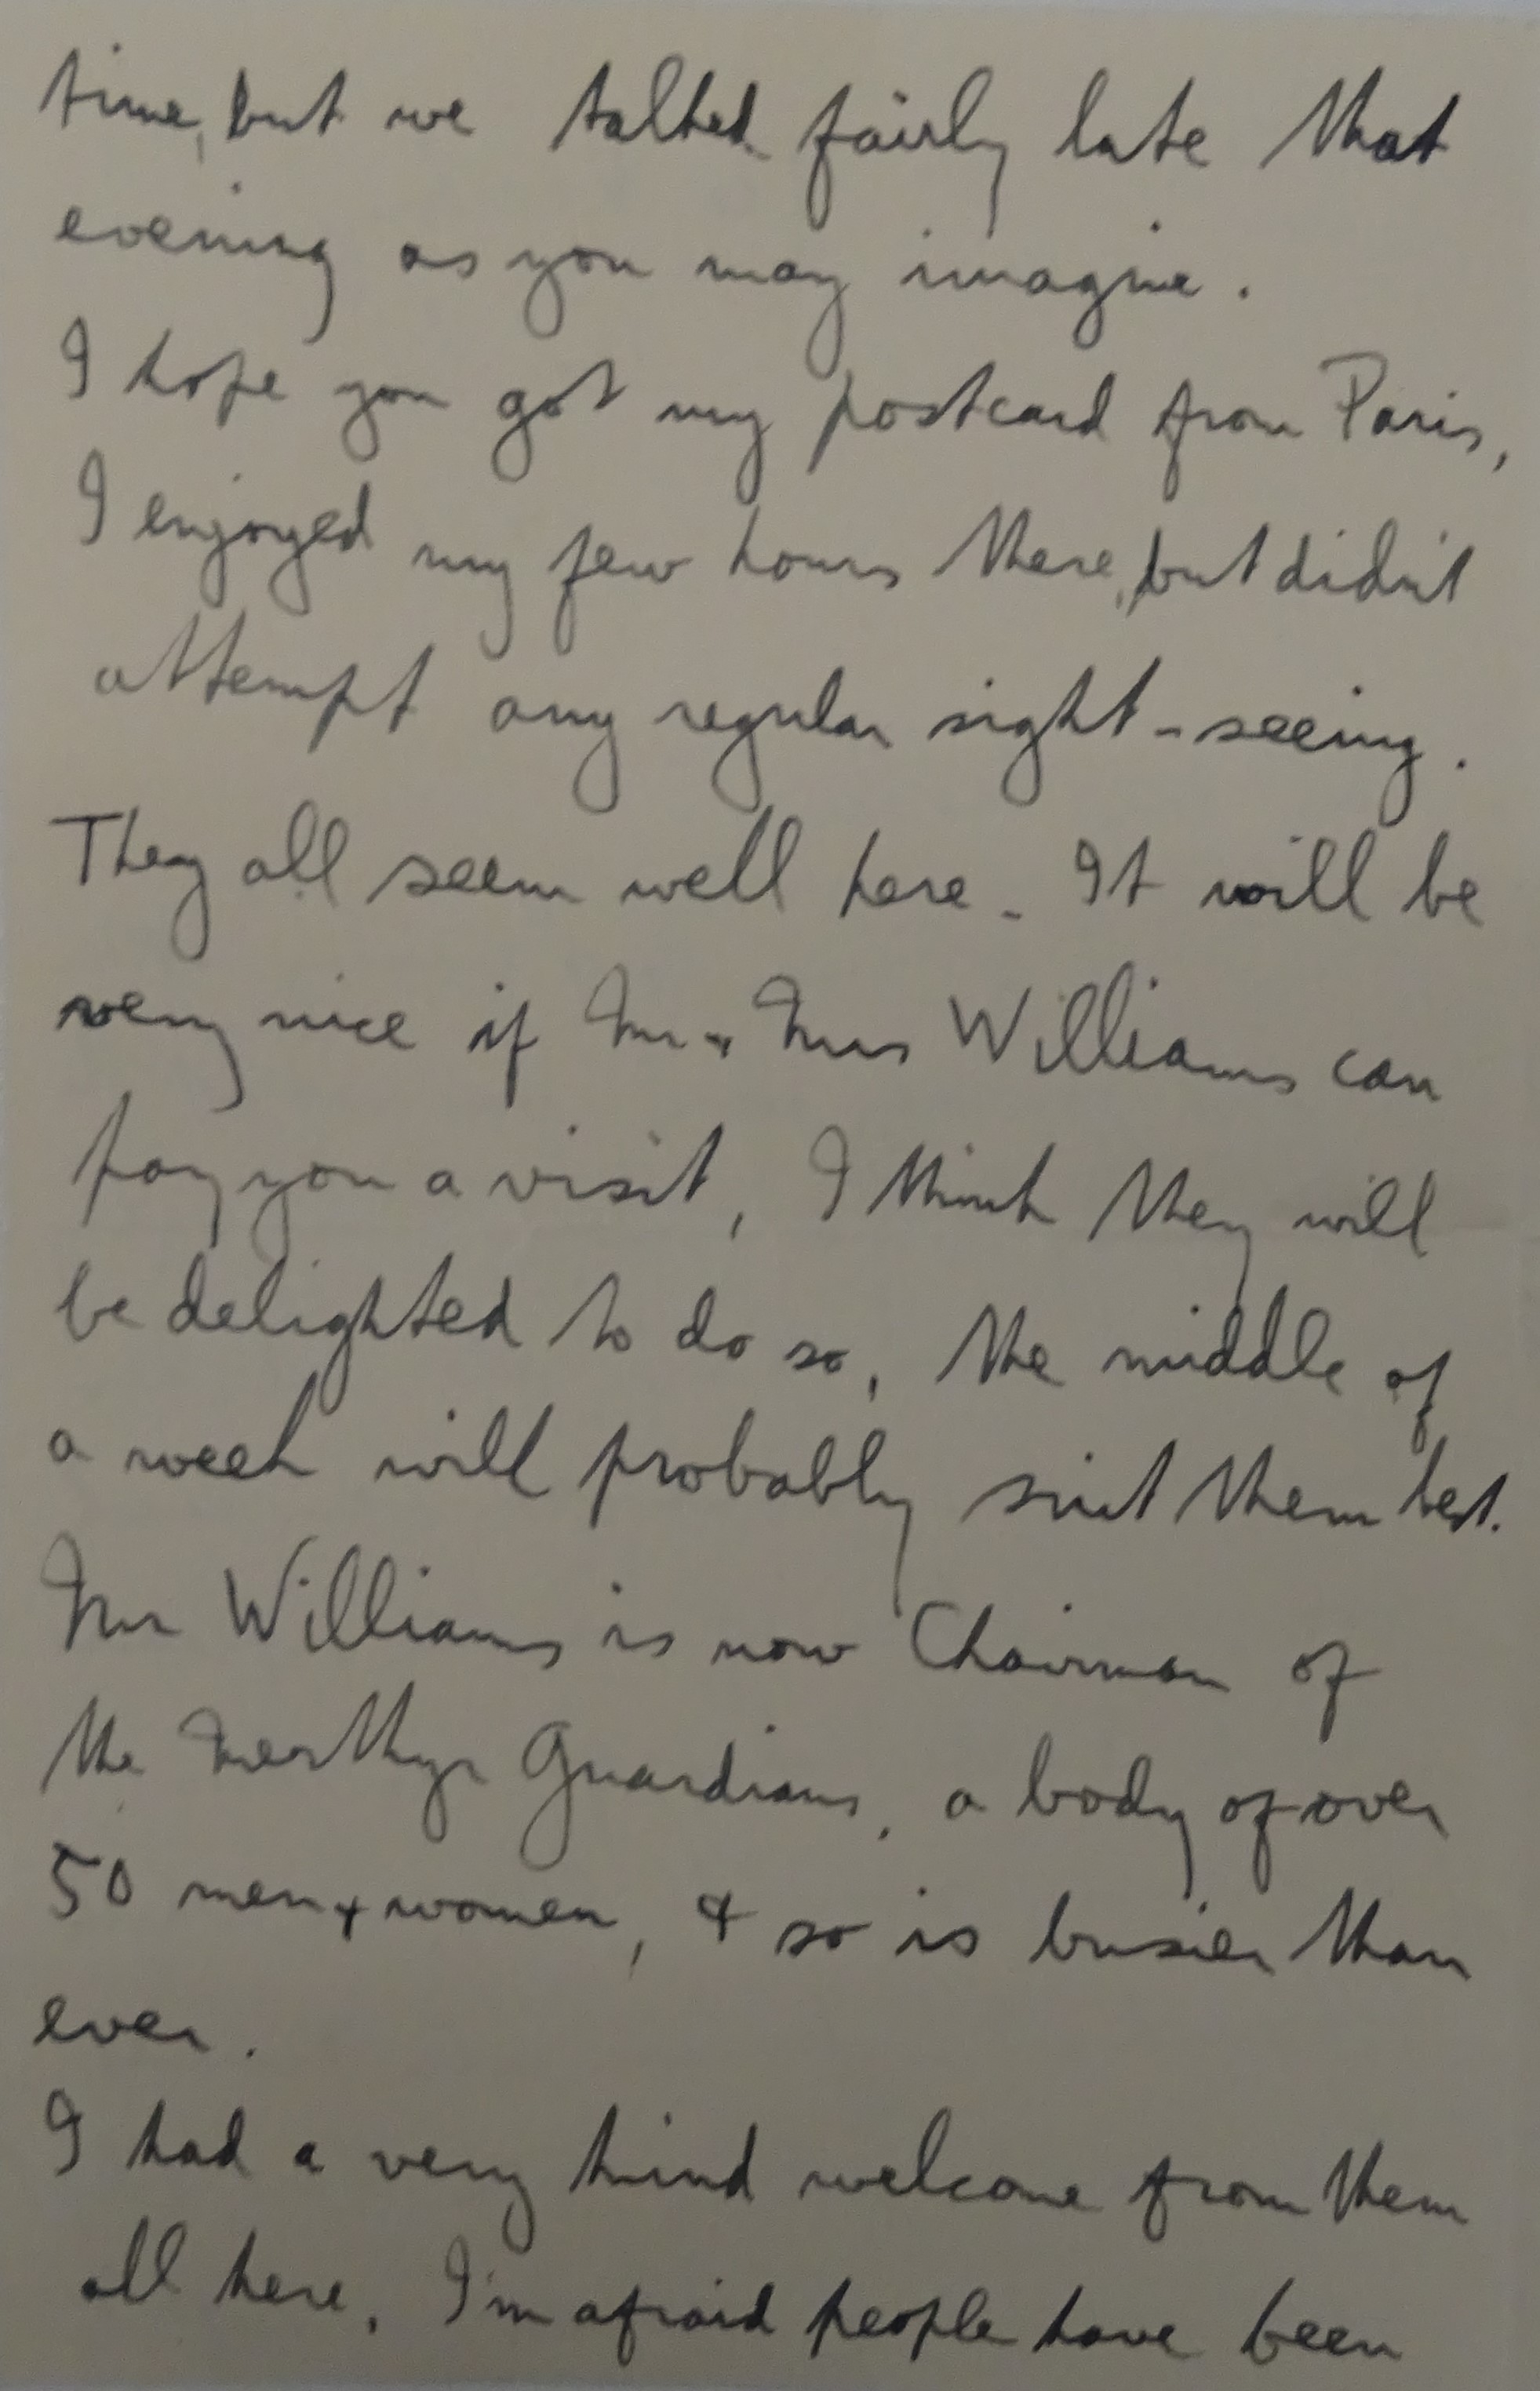 time, but we talked fairly late that
evening as you may imagine.
I hope you got my postcard from Paris,
I enjoyed my few hours there, but didn't
attempt any regular sight-seeing.
They all seem well here. It will be
very nice if Mr & Mrs Williams can
pay you a visit, I think they will
be delighted to do so, the middle of
a week will probably suit them best.
Mr Williams is now Chairman of
the Merthyr Guardians, a body of over
50 men & women, & so is busier than
ever.
I had a very kind welcome from them
all here, I'm afraid people have been